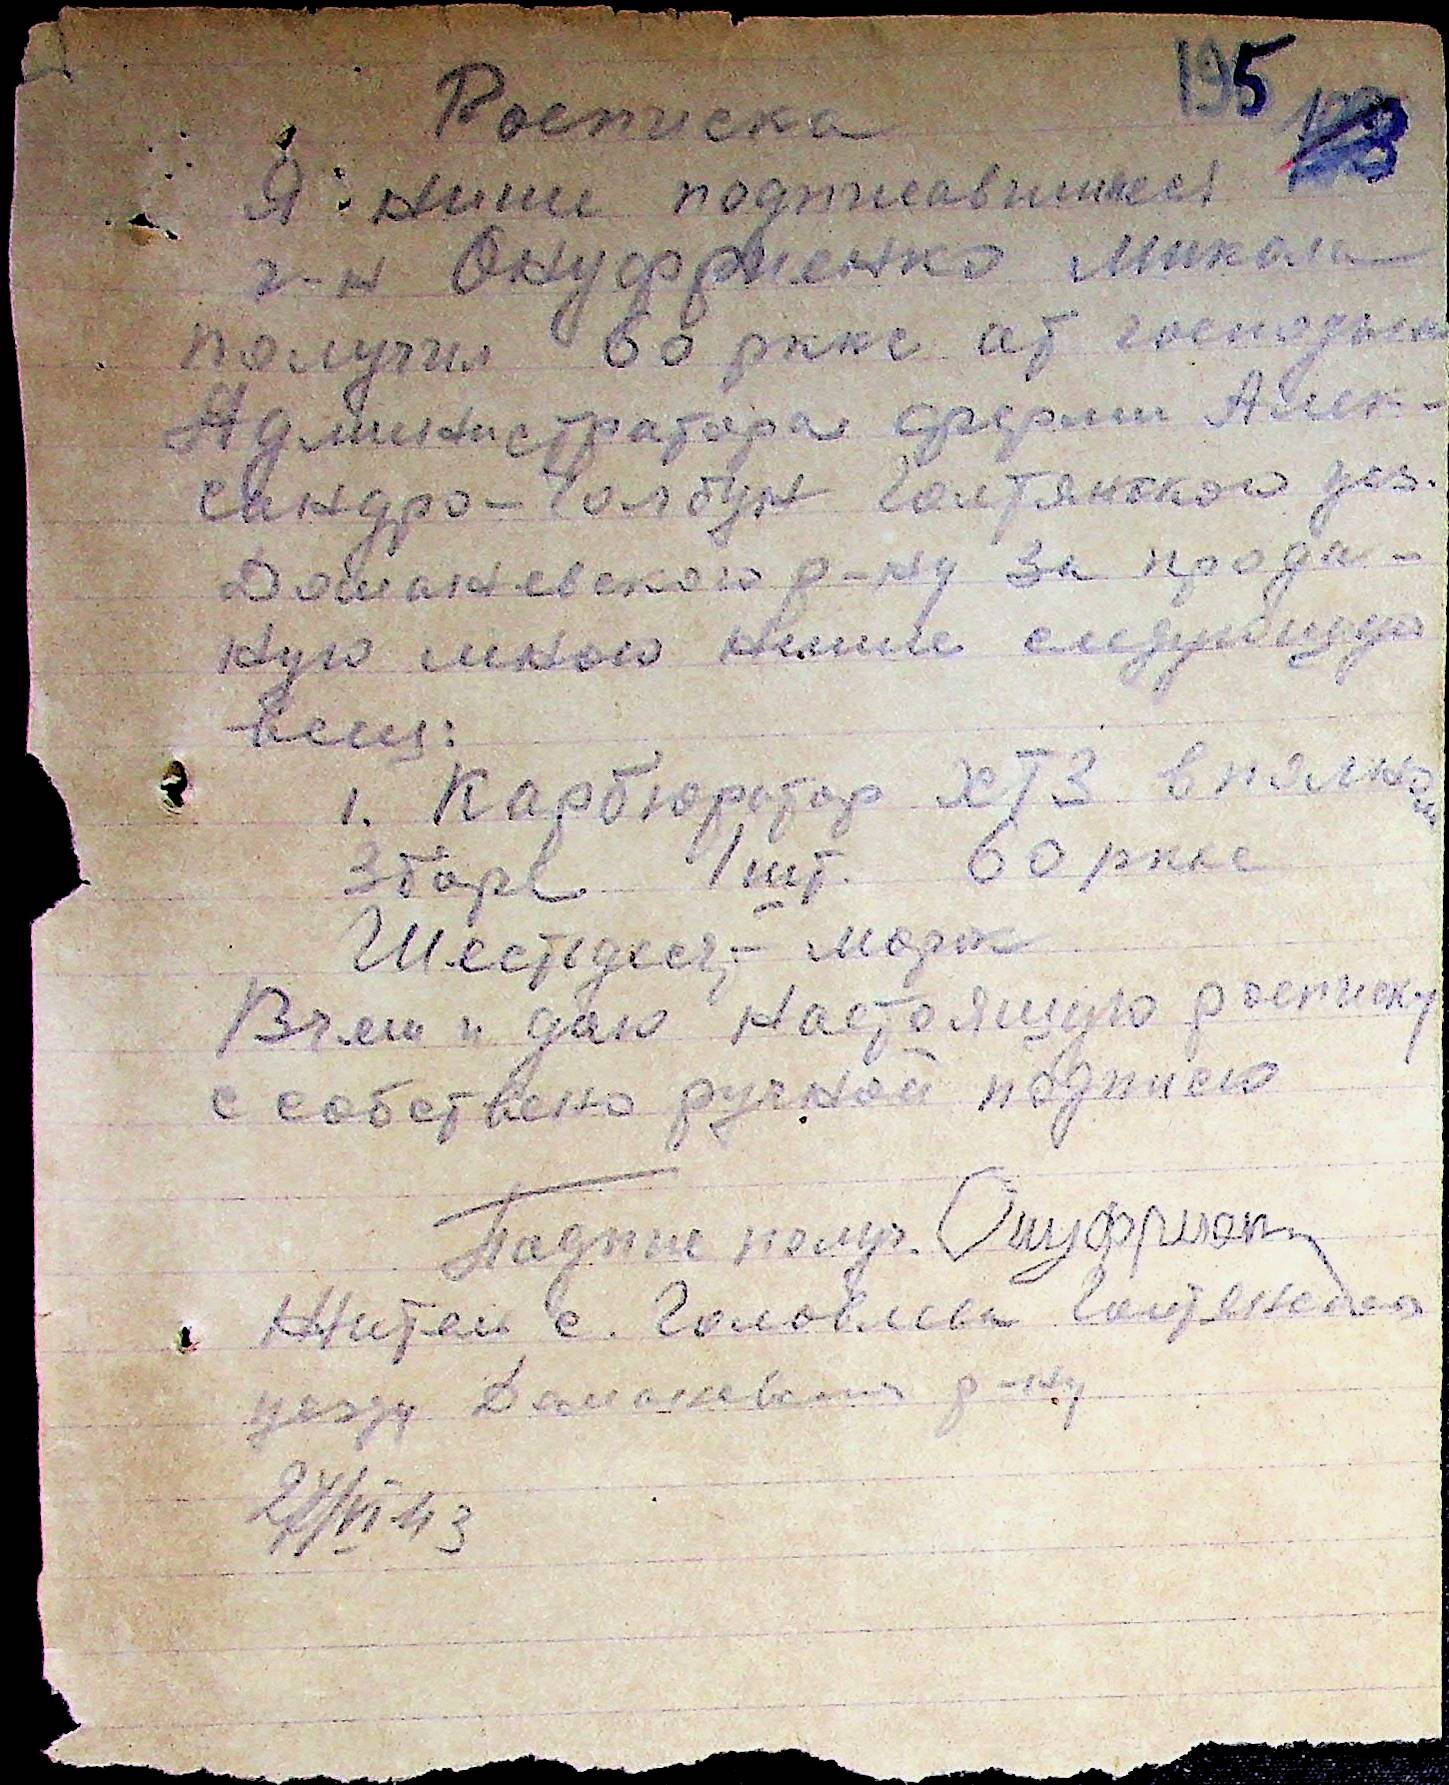 195 123
Росписка
Я ниши подписавшиеся
г-н Онуфриенко Микола
получил 60 ркке от господина
Администратора ферми Алек-
сандро-Голбун Голтянского уез.
Доманевского р-ну за прода-
ную мною ниши следующую
вещ:
1. Карбюратор ХТЗ в полном
Зборе 1 шт. 60 ркке
Шестьдесят марок
В чем и даю настоящую росписку
с собствено ручной подписю
Подпис получ. Онуфриен
Жител с. Головлева Голтянского
уезду Доманевского р-ну
27/VI 43